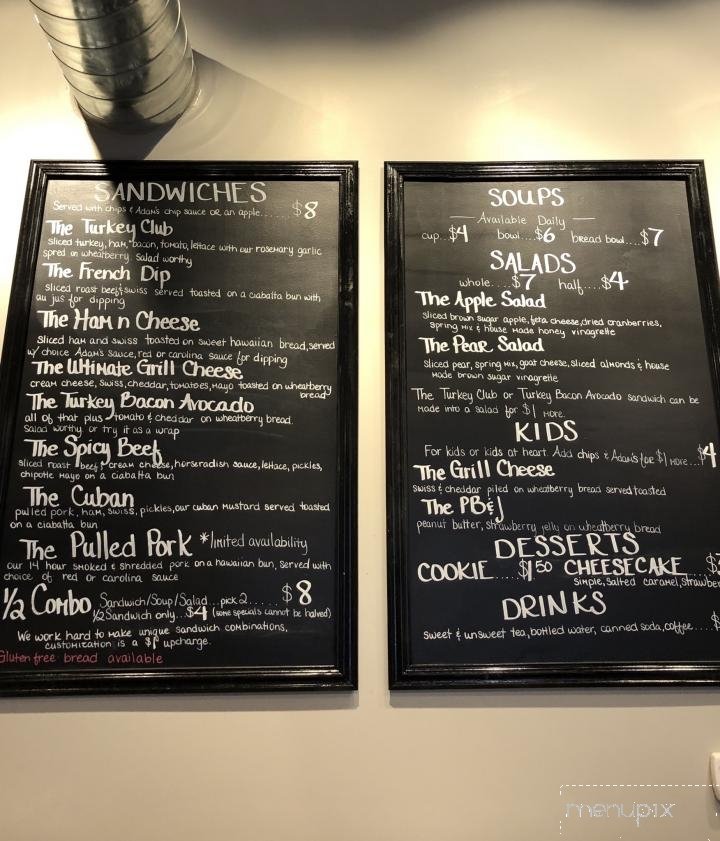 SANDWICHES
Served with chips & Adam's chip sauce OR an apple......$8
The Turkey Club
sliced turkey, ham, bacon, tomato, lettace with our rosemary garlic
spred on wheatberry. Salad worthy
The French Dip
sliced roast beef & swiss served toasted on a ciabatta bun with
au jus for dipping
The Ham n Cheese
sliced ham and swiss toasted on sweet hawaiian bread, served
w/ choice Adam's sauce, red or carolina sauce for dipping
The Ultimate Grill Cheese
cream cheese, swiss, cheddar, tomatoes, mayo toasted on wheatberry
bread
The Turkey Bacon Avocado
all of that plus tomato & cheddar on wheatberry bread.
Salad worthy or try it as a wrap
The Spicy Beef
sliced roast beef, cream cheese, horseradish sauce, lettace, pickles,
chipotle mayo on a ciabatta bun
The Cuban
pulled pork, ham, swiss, pickles, our cuban mustard served toasted
on a ciabatta bun
The Pulled Pork *limited availability
our 14 hour smoked & shredded pork on a hawaiian bun, served with
choice of red or carolina sauce
1/2 Combo Sandwich/Soup/Salad...pick 2......$8
1/2 Sandwich only...$4 (some specials cannot be halved)
We work hard to make unique sandwich combinations,
customization is a $1 upcharge.
Gluten free bread available
SOUPS
Available Daily
cup..$4 bowl...$6 bread bowl...$7
SALADS
whole....$7 half....$4
The Apple Salad
sliced brown sugar apple, feta cheese, dried cranberries,
spring mix & house made honey vinagrette
The Pear Salad
sliced pear, spring mix, goat cheese, sliced almonds & house
made brown sugar vinagrette
The Turkey Club or Turkey Bacon Avocado sandwich can be
made into a salad for $1 more.
KIDS
For kids or kids at heart. Add chips & Adam's for $1 more...$4
The Grill Cheese
swiss & cheddar piled on wheatberry bread served toasted
The PB&J
peanut butter, strawberry jelly on wheatberry bread
DESSERTS
COOKIE....$1.50 CHEESECAKE
simple, salted caramel,
DRINKS
sweet & unsweet tea, bottled water, canned soda, coffee....$
menupix